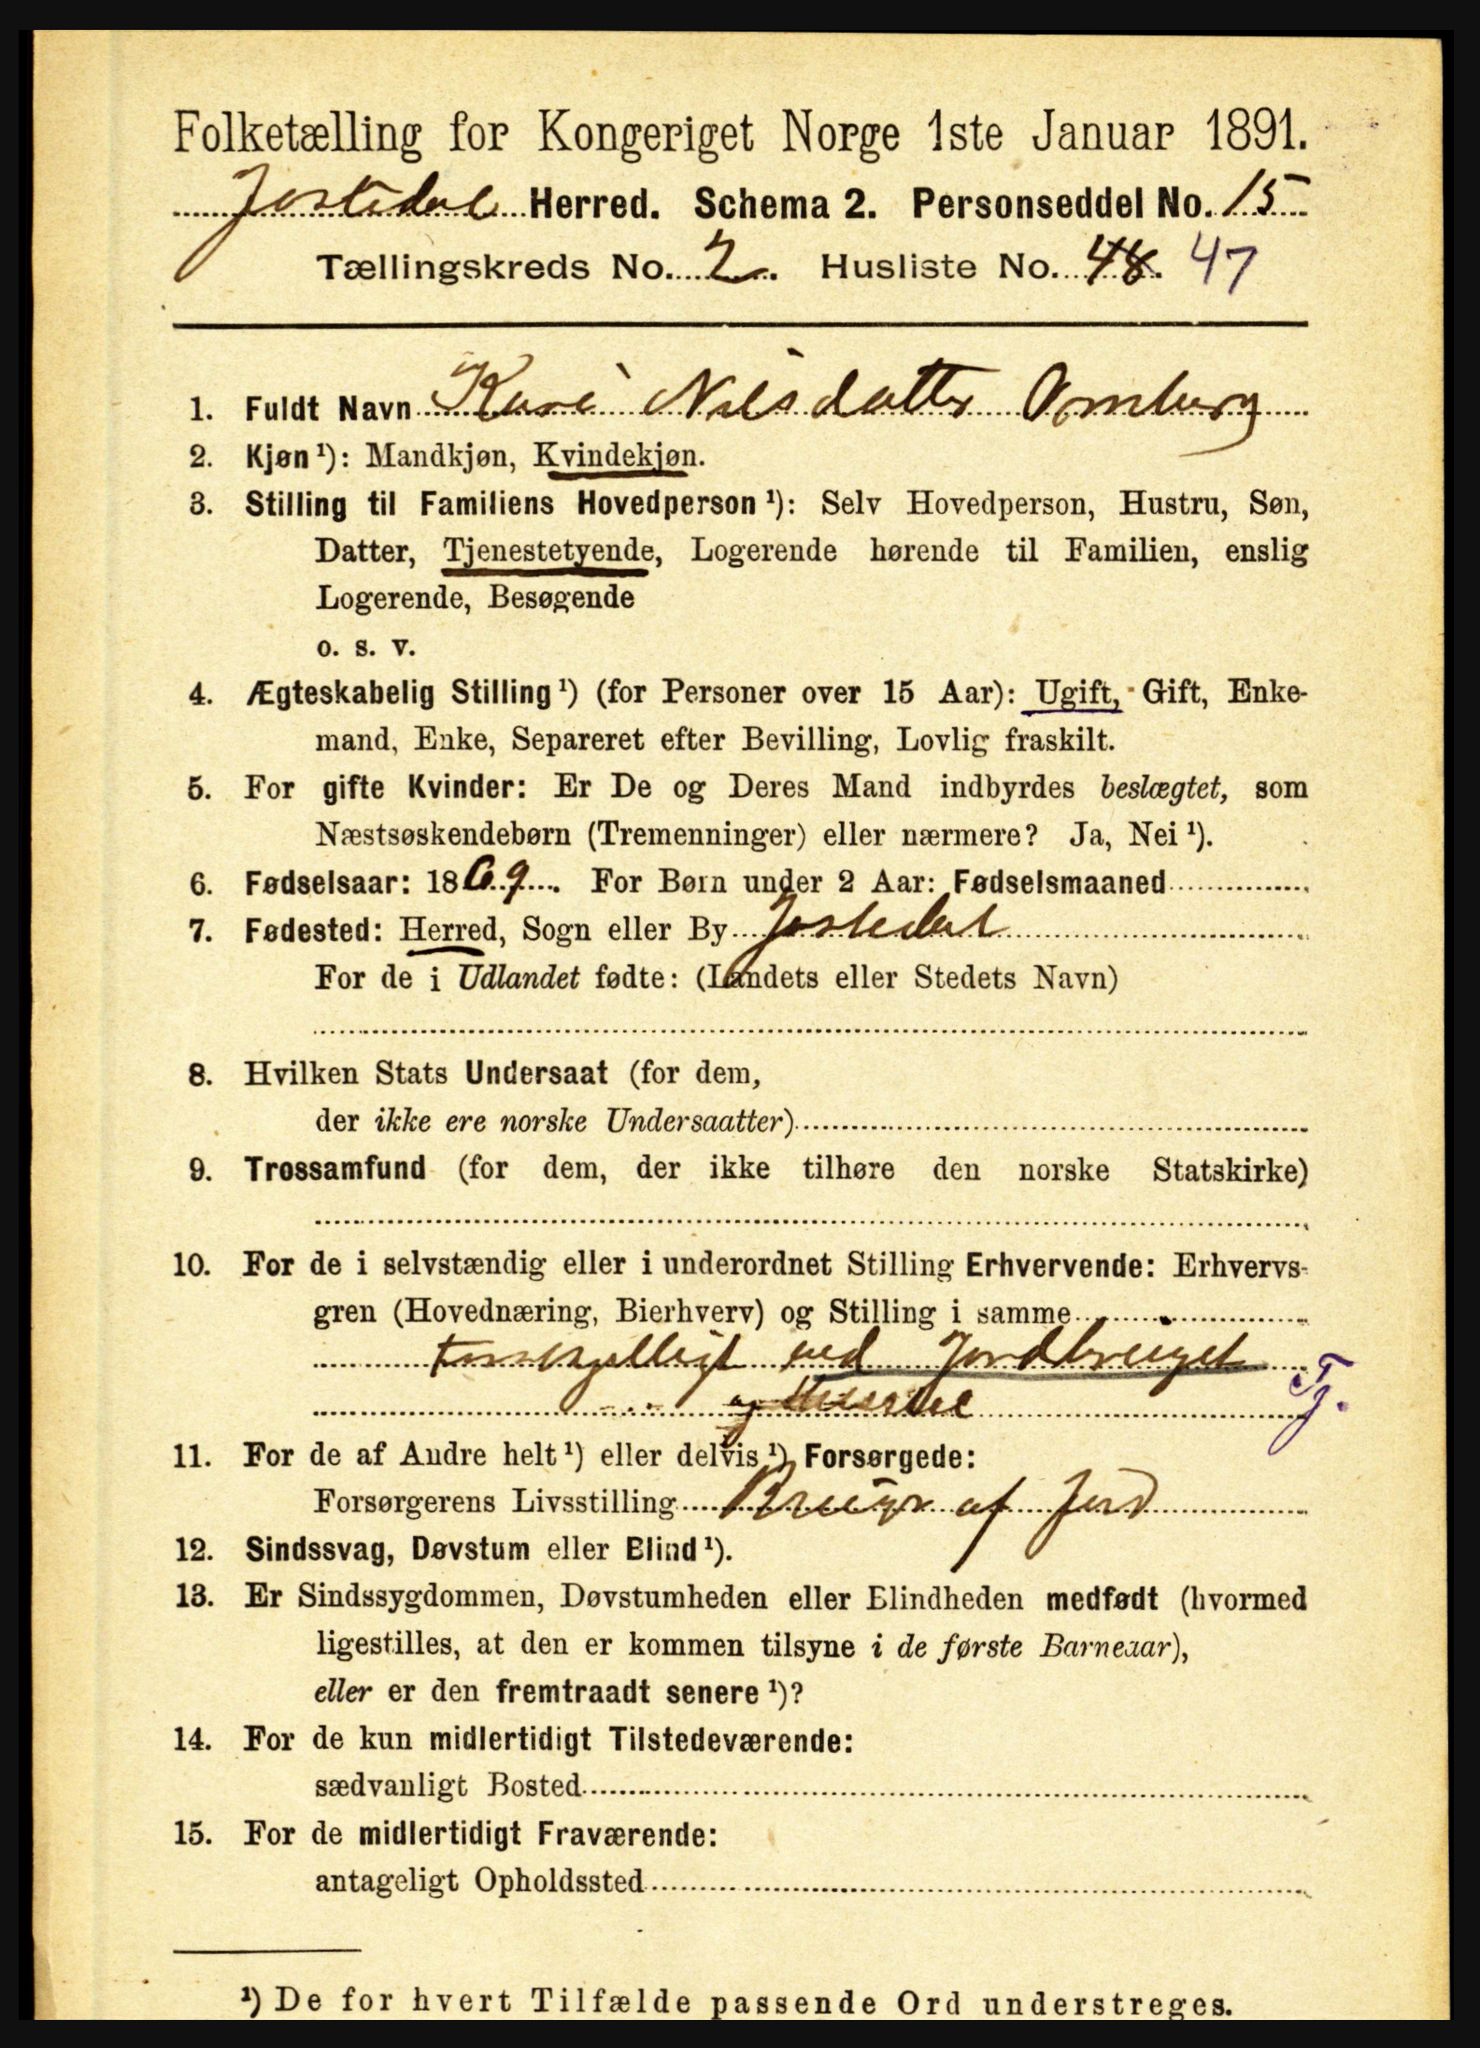 Folketælling for Kongeriget Norge 1ste Januar 1891.
Jostedal Herred. Schema 2. Personseddel No. 15
Tællingskreds No. 2. Husliste No. 48. 47
1. Fuldt Navn Kari Nilsdatter Ormberg
2. Kjøn ¹): Mandkjøn, Kvindekjøn.
3. Stilling til Familiens Hovedperson ¹): Selv Hovedperson, Hustru, Søn,
Datter, Tjenestetyende, Logerende hørende til Familien, enslig
Logerende, Besøgende
o. s. v.
4. Ægteskabelig Stilling ¹) (for Personer over 15 Aar): Ugift, Gift, Enke-
mand, Enke, Separeret efter Bevilling, Lovlig fraskilt.
5. For gifte Kvinder: Er De og Deres Mand indbyrdes beslægtet, som
Næstsøskendebørn (Tremenninger) eller nærmere? Ja, Nei ¹).
6. Fødselsaar: 1869. For Børn under 2 Aar: Fødselsmaaned
7. Fødested: Herred, Sogn eller By Jostedal
For de i Udlandet fødte: (Landets eller Stedets Navn)
8. Hvilken Stats Undersaat (for dem,
der ikke ere norske Undersaatter)
9. Trossamfund (for dem, der ikke tilhøre den norske Statskirke)
10. For de i selvstændig eller i underordnet Stilling Erhvervende: Erhvervs-
gren (Hovednæring, Bierhverv) og Stilling i samme
ved Jordbruget
og Tj.
11. For de af Andre helt ¹) eller delvis ¹) Forsørgede:
Forsørgerens Livsstilling Bruger af Jord
12. Sindssvag, Døvstum eller Blind ¹).
13. Er Sindssygdommen, Døvstumheden eller Blindheden medfødt (hvormed
ligestilles, at den er kommen tilsyne i de første Barneaar),
eller er den fremtraadt senere ¹)?
14. For de kun midlertidigt Tilstedeværende:
sædvanligt Bosted
15. For de midlertidigt Fraværende:
antageligt Opholdssted
¹) De for hvert Tilfælde passende Ord understreges.